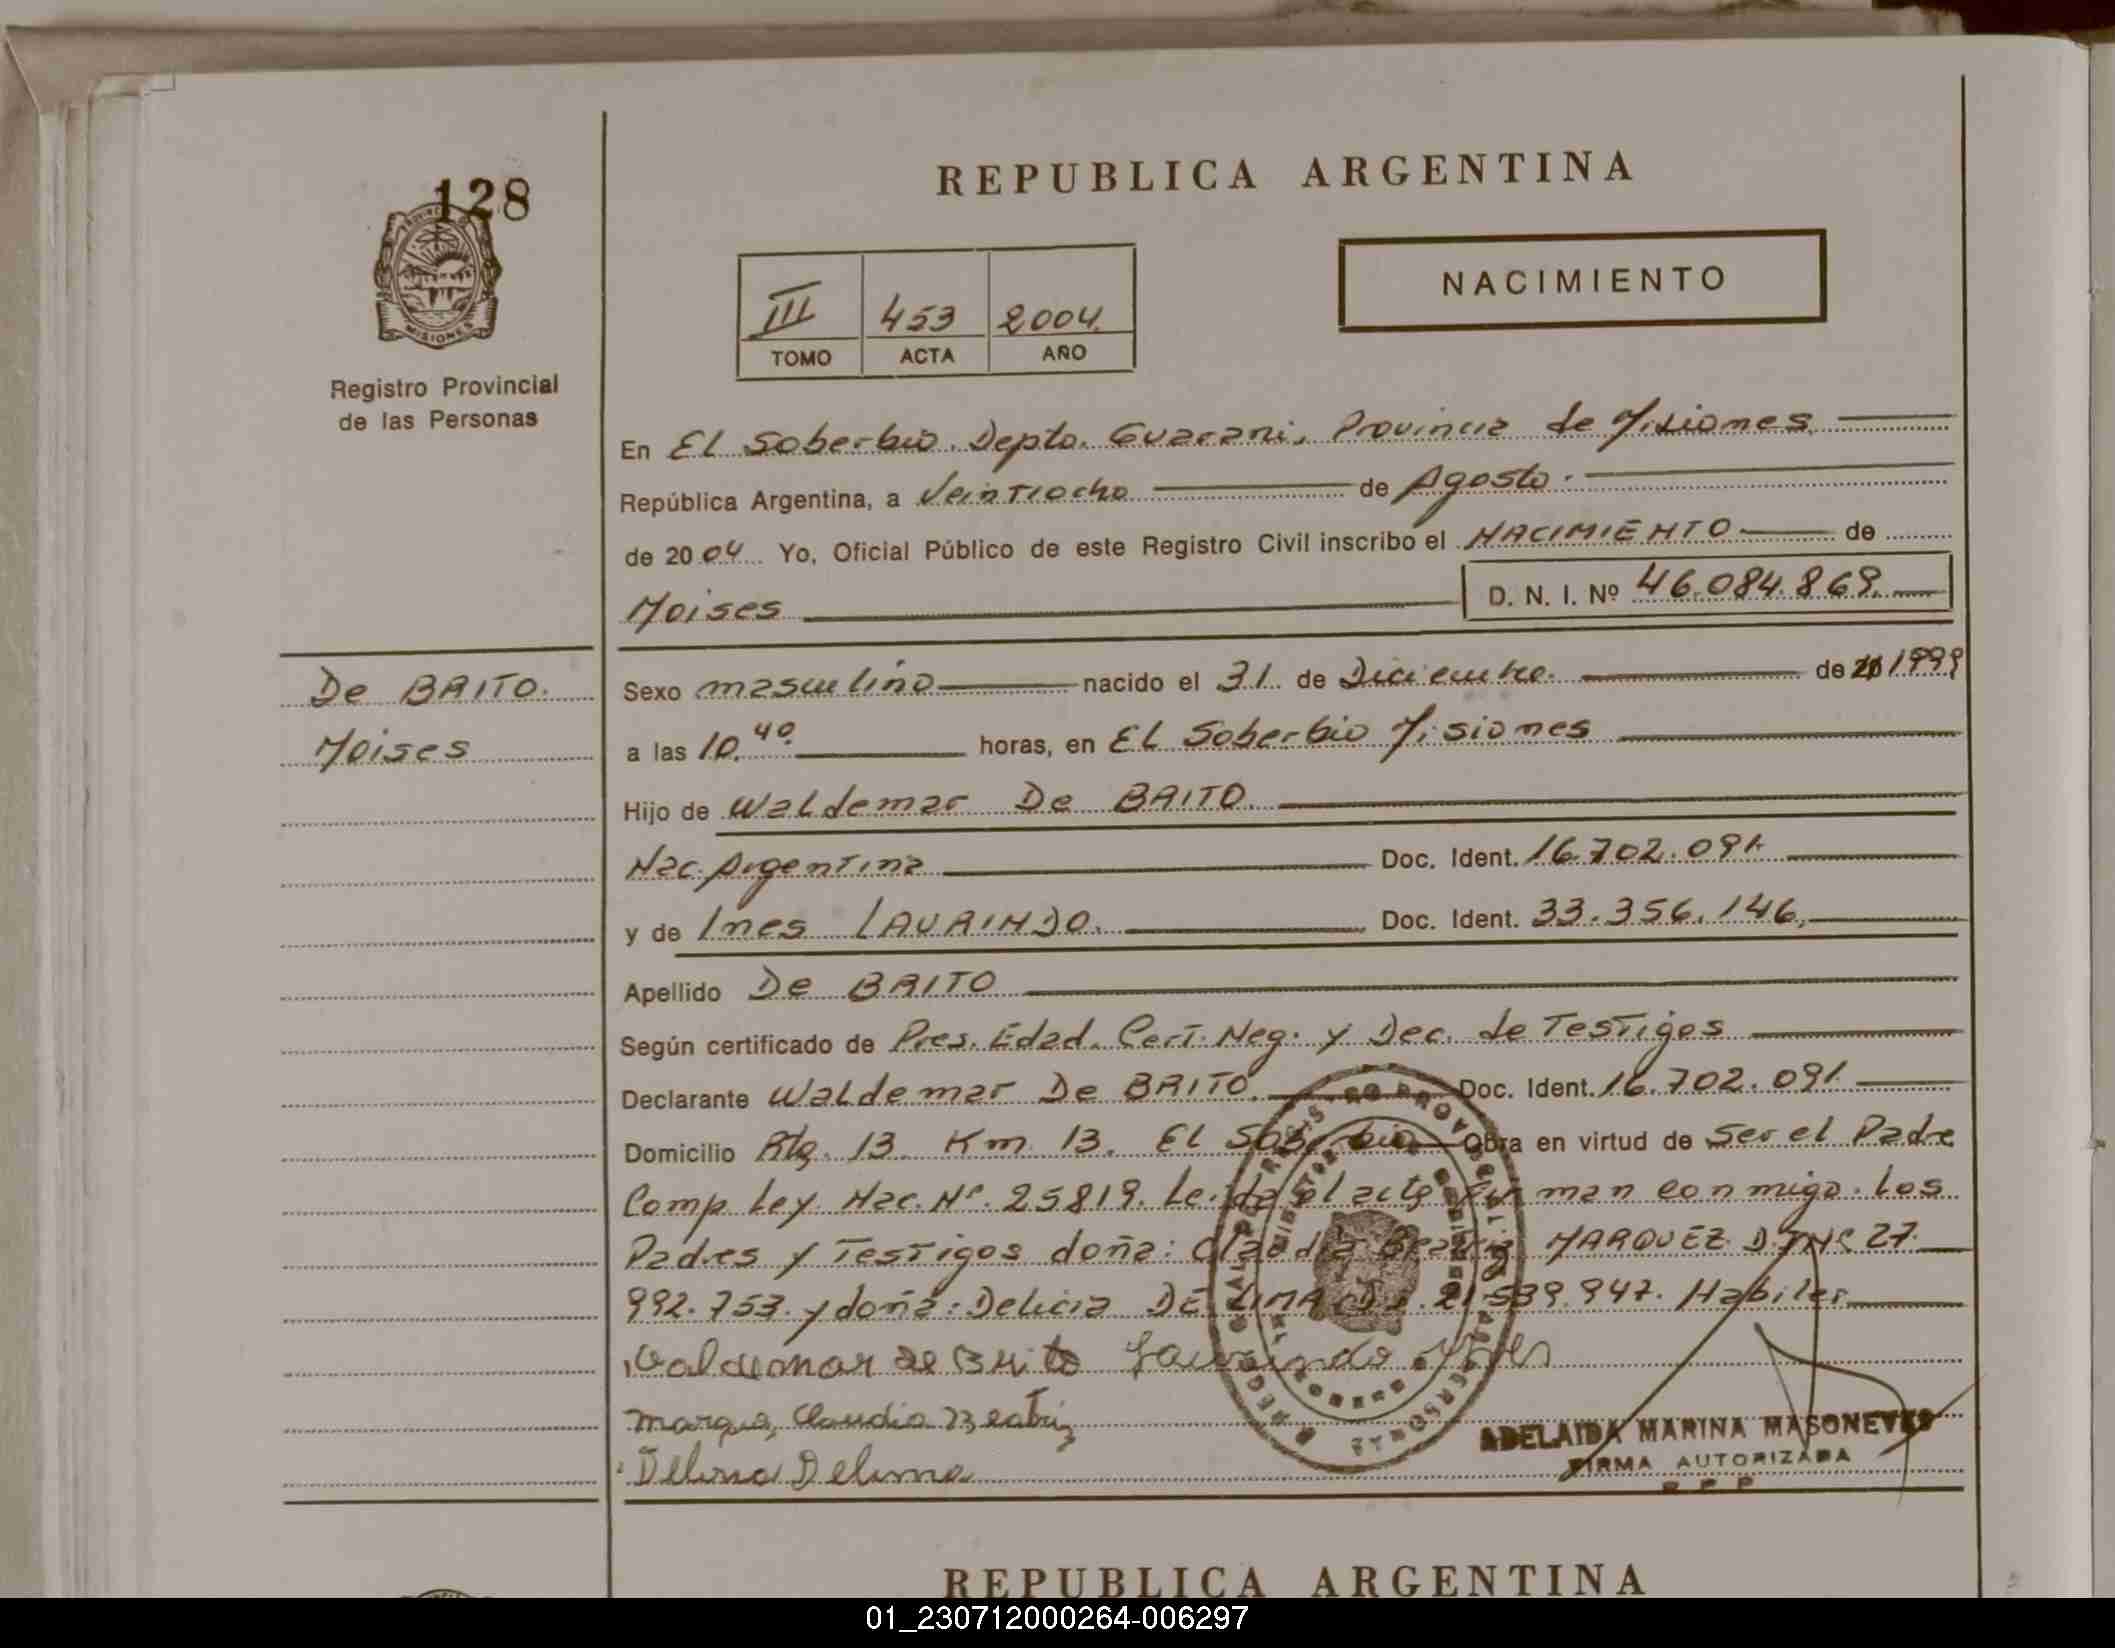 128
REPUBLICA ARGENTINA
NACIMIENTO
III 453 2004
TOMO ACTA AÑO
MISIONES
Registro Provincial
de las Personas
En El Soberbio. Depto. Guarani, Provincia de Misiones
República Argentina, a Veintiocho de Agosto.
de 2004 Yo, Oficial Público de este Registro Civil inscribo el NACIMIENTO de
Moises D. N. I. Nº 46.084.869.
De BRITO.
Moises
Sexo masculino nacido el 31 de Diciembre. de 1999
a las 10.40 horas, en El Soberbio Misiones
Hijo de Waldemar De BRITO.
Nac. Argentina Doc. Ident. 16.702.091
y de Ines LAURINDO. Doc. Ident. 33.356.146,
Apellido De BRITO
Según certificado de Pres. Edad. Cert. Neg. y Dec. de Testigos
Declarante Waldemar De BRITO. Doc. Ident. 16.702.091
Domicilio Rta. 13 Km 13. El Soberbio Obra en virtud de Ser el Padre
Comp Ley Nac. Nº 25819. Leida el acta firman conmigo. Los
Padres y Testigos doña: Claudia Beatriz MARQUEZ DNI 27.
992.753. y doña: Delicia DE LIMA D.I. 21.539.947. Habiles
Valdemar de Brito Laurindo Ines
Marques, Claudia Beatriz
Delima
ADELAIDA MARINA MASONEVES
FIRMA AUTORIZADA
R.P.P
REPUBLICA ARGENTINA
01_230712000264-006297